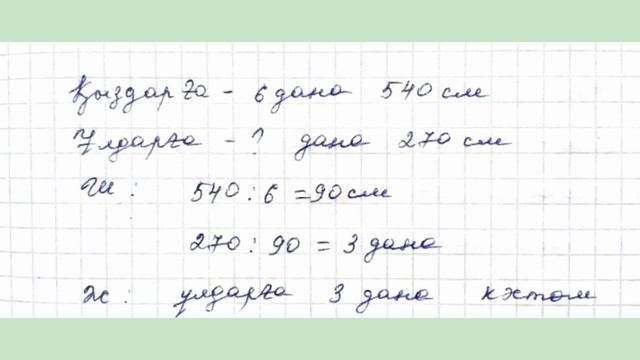 Қыздарға - 6 дана 540 см
Ұлдарға - ? дана 270 см
Ш: 540 : 6 = 90 см
270 : 90 = 3 дана
Ж: ұлдарға 3 дана